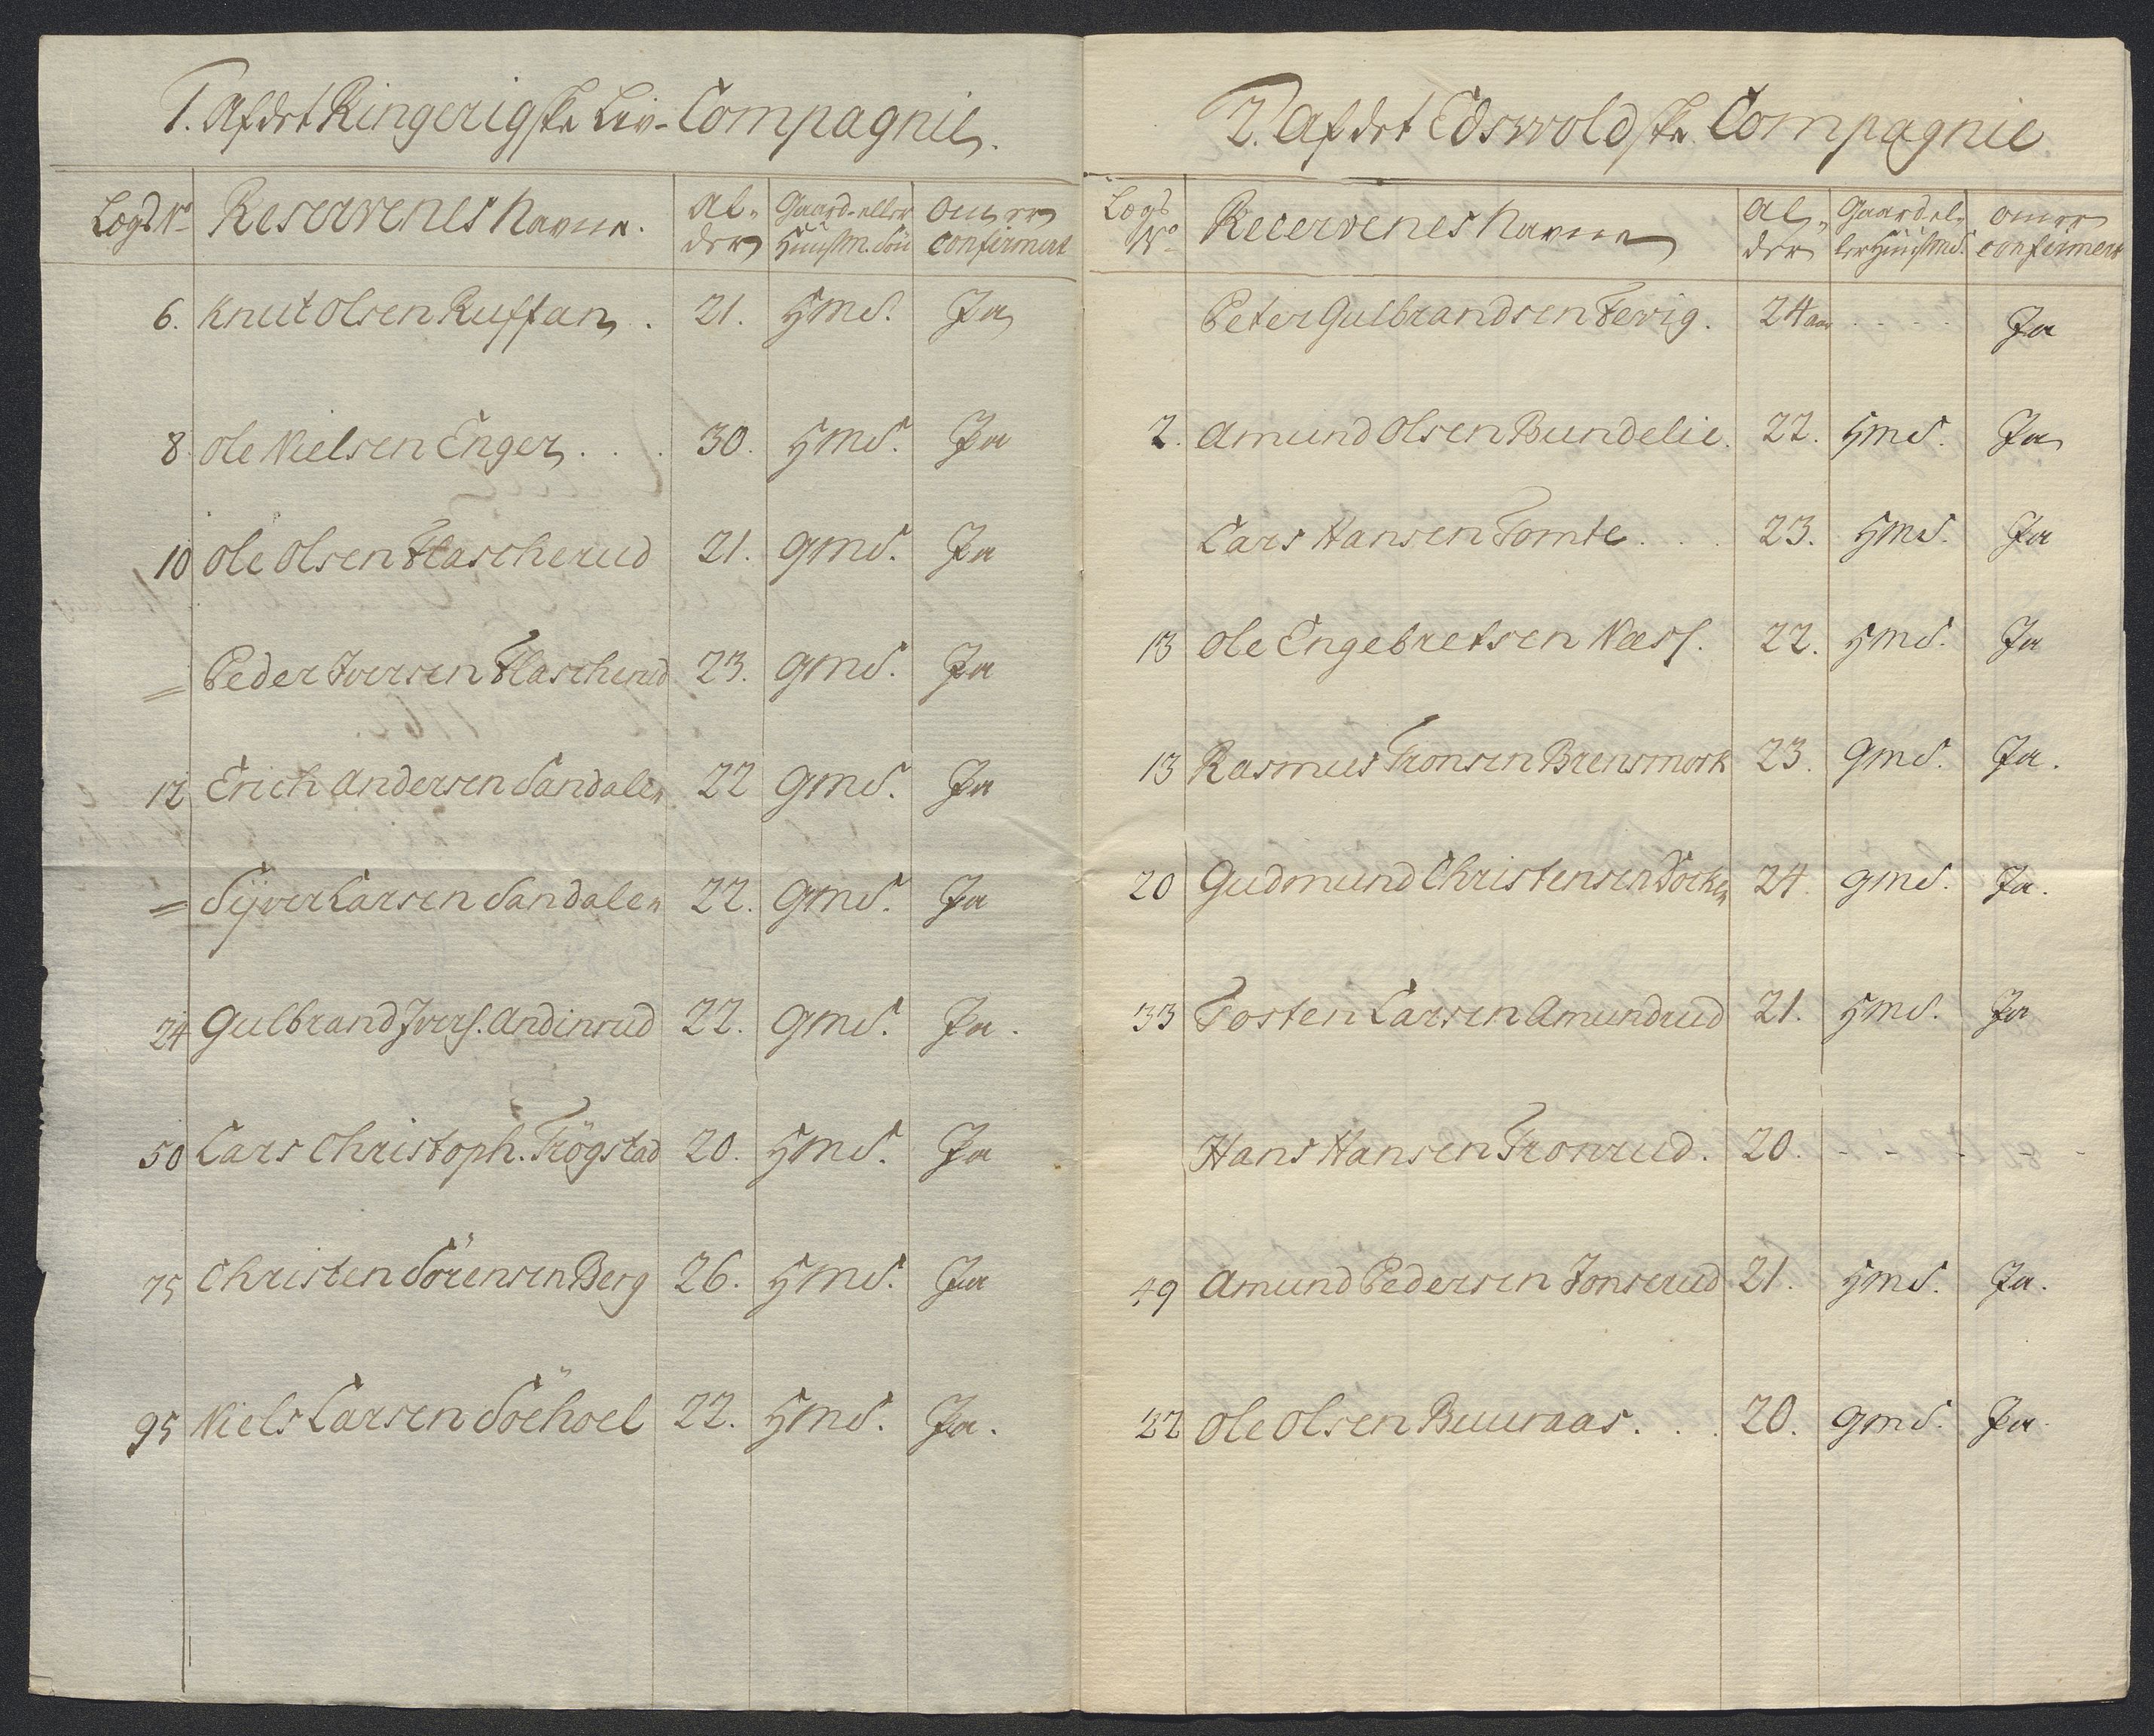 1. Af det Ringerigske Liv-Compagnie.
Lægd No Reserrenes Navne. Al- Gaard- eller om er
der Huusm. Søn Confirmert
6. Knut Olsen Ruffan . 21. HmS. Ja
8. Ole Nielsen Enger . . . 30. HmS. Ja
10 Ole Olsen Flascherud 21. GmS. Ja
= Peder Iversen Flascherud 23. GmS. Ja
12 Erich Andersen Sandalen 22 GmS. Ja
= Syver Larsen Sandalen 22. GmS. Ja
24 Gulbrand Ivers. Andinrud 22. GmS. Ja.
50 Lars Christoph. Frögstad 20. HmS. Ja
75 Christen Sörensen Berg 26. HmS. Ja
95 Niels Larsen Söehoel 22. HmS. Ja.
2. Af det Edswoldske Compagnie
Lægds Recervenes Navne Al- Gaard el- om er
No der ler HuusmS. confirmert
Peter Gulbrandsen Fevig. 24 aar . . . . Ja
2. Amund Olsen Bundelie. 22. HmS. Ja
Lars Hansen Tomte . . . 23. HmS. Ja
13 Ole Engebretsen Næss. 22. HmS. Ja
13 Rasmus Tronsen Brensmork 23. GmS. Ja.
20 Gudmund Christensen 24. GmS. Ja.
33 Tosten Larsen Amundrud 21. HmS. Ja
Hans Hansen Tronrud. 20. - - - - -
49 Amund Pedersen Jonserud 21. HmS. Ja.
32 Ole Olsen Buuraas . . . 20. GmS. Ja.